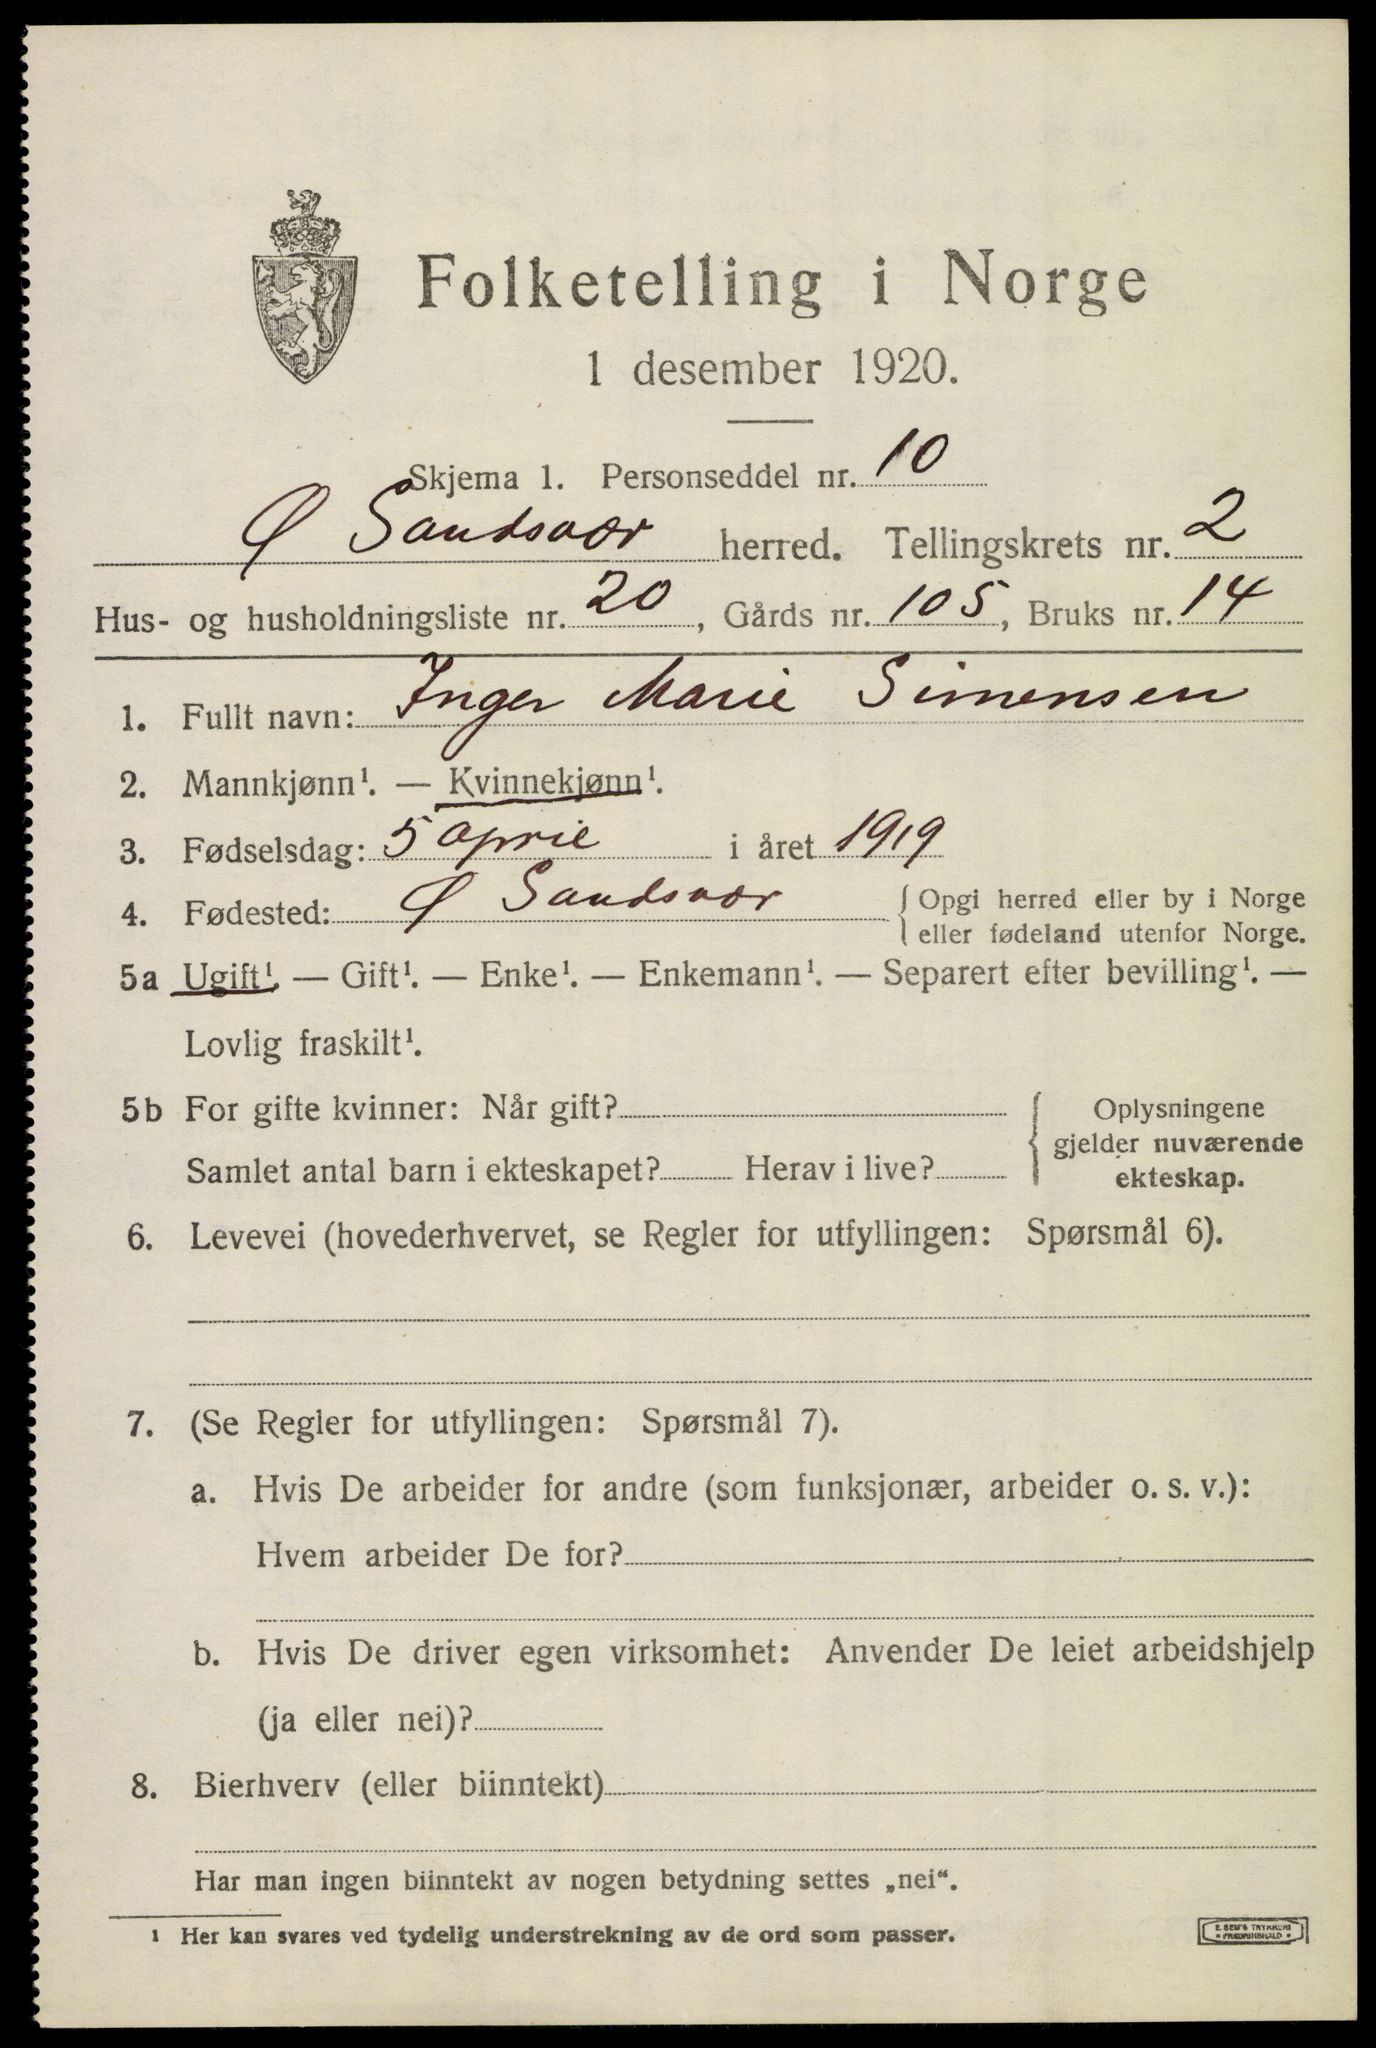 Folketelling i Norge
1 desember 1920.
Skjema 1. Personseddel nr. 10
Ø Sandsvær herred. Tellingskrets nr. 2
Hus- og husholdningsliste nr. 20, Gårds nr. 105, Bruks nr. 14
1. Fullt navn: Inger Marie Simensen
2. Mannkjønn¹. — Kvinnekjønn¹.
3. Fødselsdag: 5 april i året 1919
4. Fødested: Ø Sandsvær { Opgi herred eller by i Norge
eller fødeland utenfor Norge.
5a Ugift¹. — Gift¹. — Enke¹. — Enkemann¹. — Separert efter bevilling¹. —
Lovlig fraskilt¹.
5b For gifte kvinner: Når gift? { Oplysningene
gjelder nuværende
Samlet antal barn i ekteskapet? Herav i live? ekteskap.
6. Levevei (hovederhvervet, se Regler for utfyllingen: Spørsmål 6).
7. (Se Regler for utfyllingen: Spørsmål 7).
a. Hvis De arbeider for andre (som funksjonær, arbeider o. s. v.):
Hvem arbeider De for?
b. Hvis De driver egen virksomhet: Anvender De leiet arbeidshjelp
(ja eller nei)?
8. Bierhverv (eller biinntekt)
Har man ingen biinntekt av nogen betydning settes „nei“.
¹ Her kan svares ved tydelig understrekning av de ord som passer.
E. SEM'S TRYKKERI
* FREDRIKSHALD *